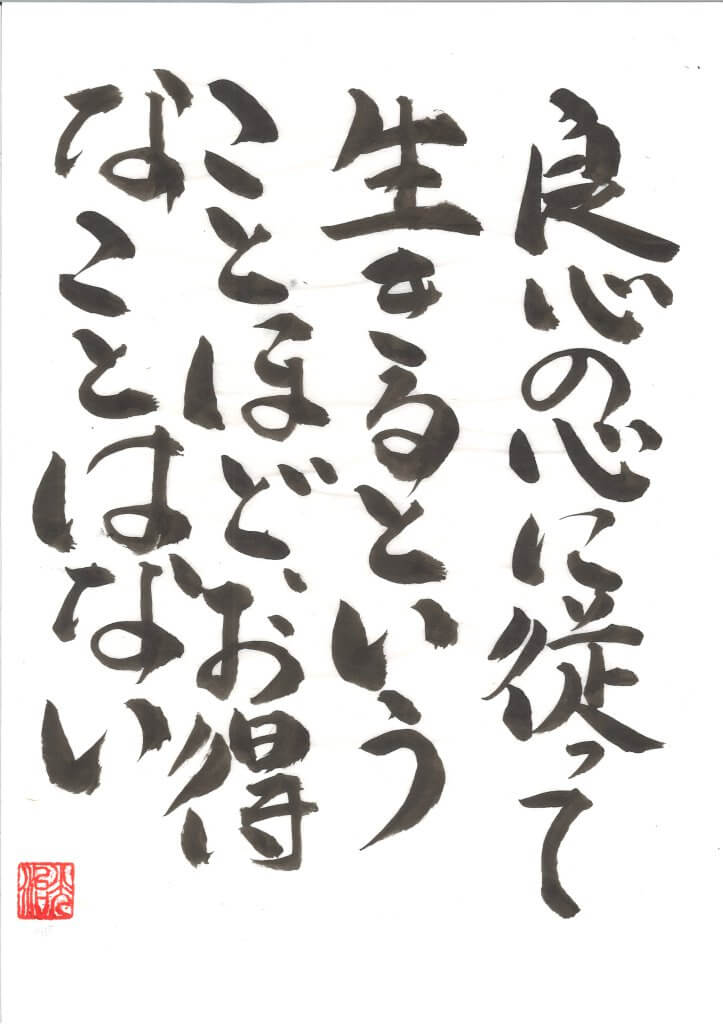 良心の心に従って
生きるという
ことほど、お得
なことはない